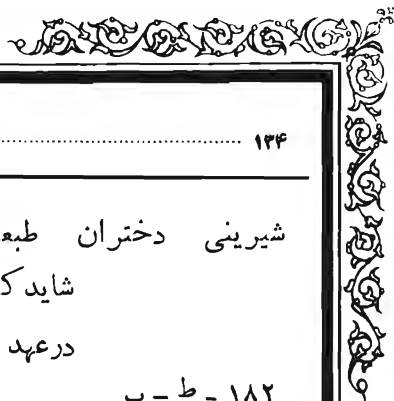 ۱۳۴ ........................................
شیرینی دختران طبع
شاید ک
در عهد
۱۸۲ - ط - ب